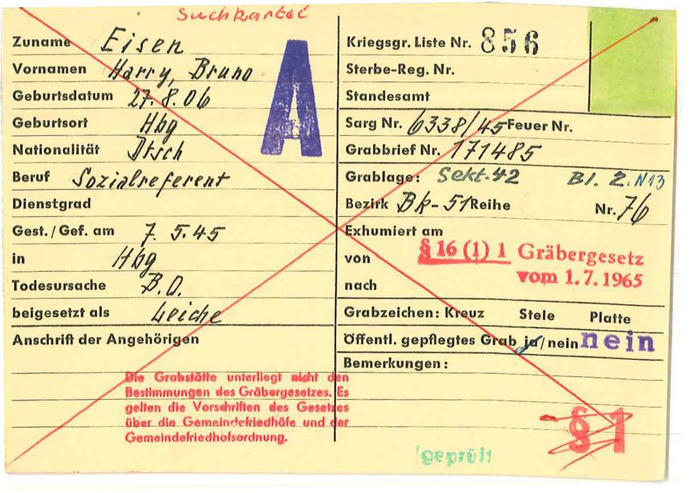 Suchkartei
Zuname Eisen
Vornamen Harry, Bruno
Geburtsdatum 27.8.06
Geburtsort Hbg
Nationalität Dtsch
Beruf Sozialreferent
Dienstgrad
Gest./Gef. am 7.5.45
in Hbg
Todesursache B.O.
beigesetzt als Leiche
Anschrift der Angehörigen
A
Die Grabstätte unterliegt nicht den
Bestimmungen des Gräbergesetzes. Es
gelten die Vorschriften des Gesetzes
über die Gemeindefriedhöfe und der
Gemeindefriedhofsordnung.
Kriegsgr. Liste Nr. 856
Sterbe-Reg. Nr.
Standesamt
Sarg Nr. 6338/45 Feuer Nr.
Grabbrief Nr. 171485
Grablage: Sekt. 42 Bl. 2. N13
Bezirk Bk-51 Reihe Nr. 76
Exhumiert am
von
nach
§ 16 (1) 1 Gräbergesetz
vom 1.7.1965
Grabzeichen: Kreuz Stele Platte
Öffentl. gepflegtes Grab ja/nein nein
Bemerkungen:
§ 1
geprüft